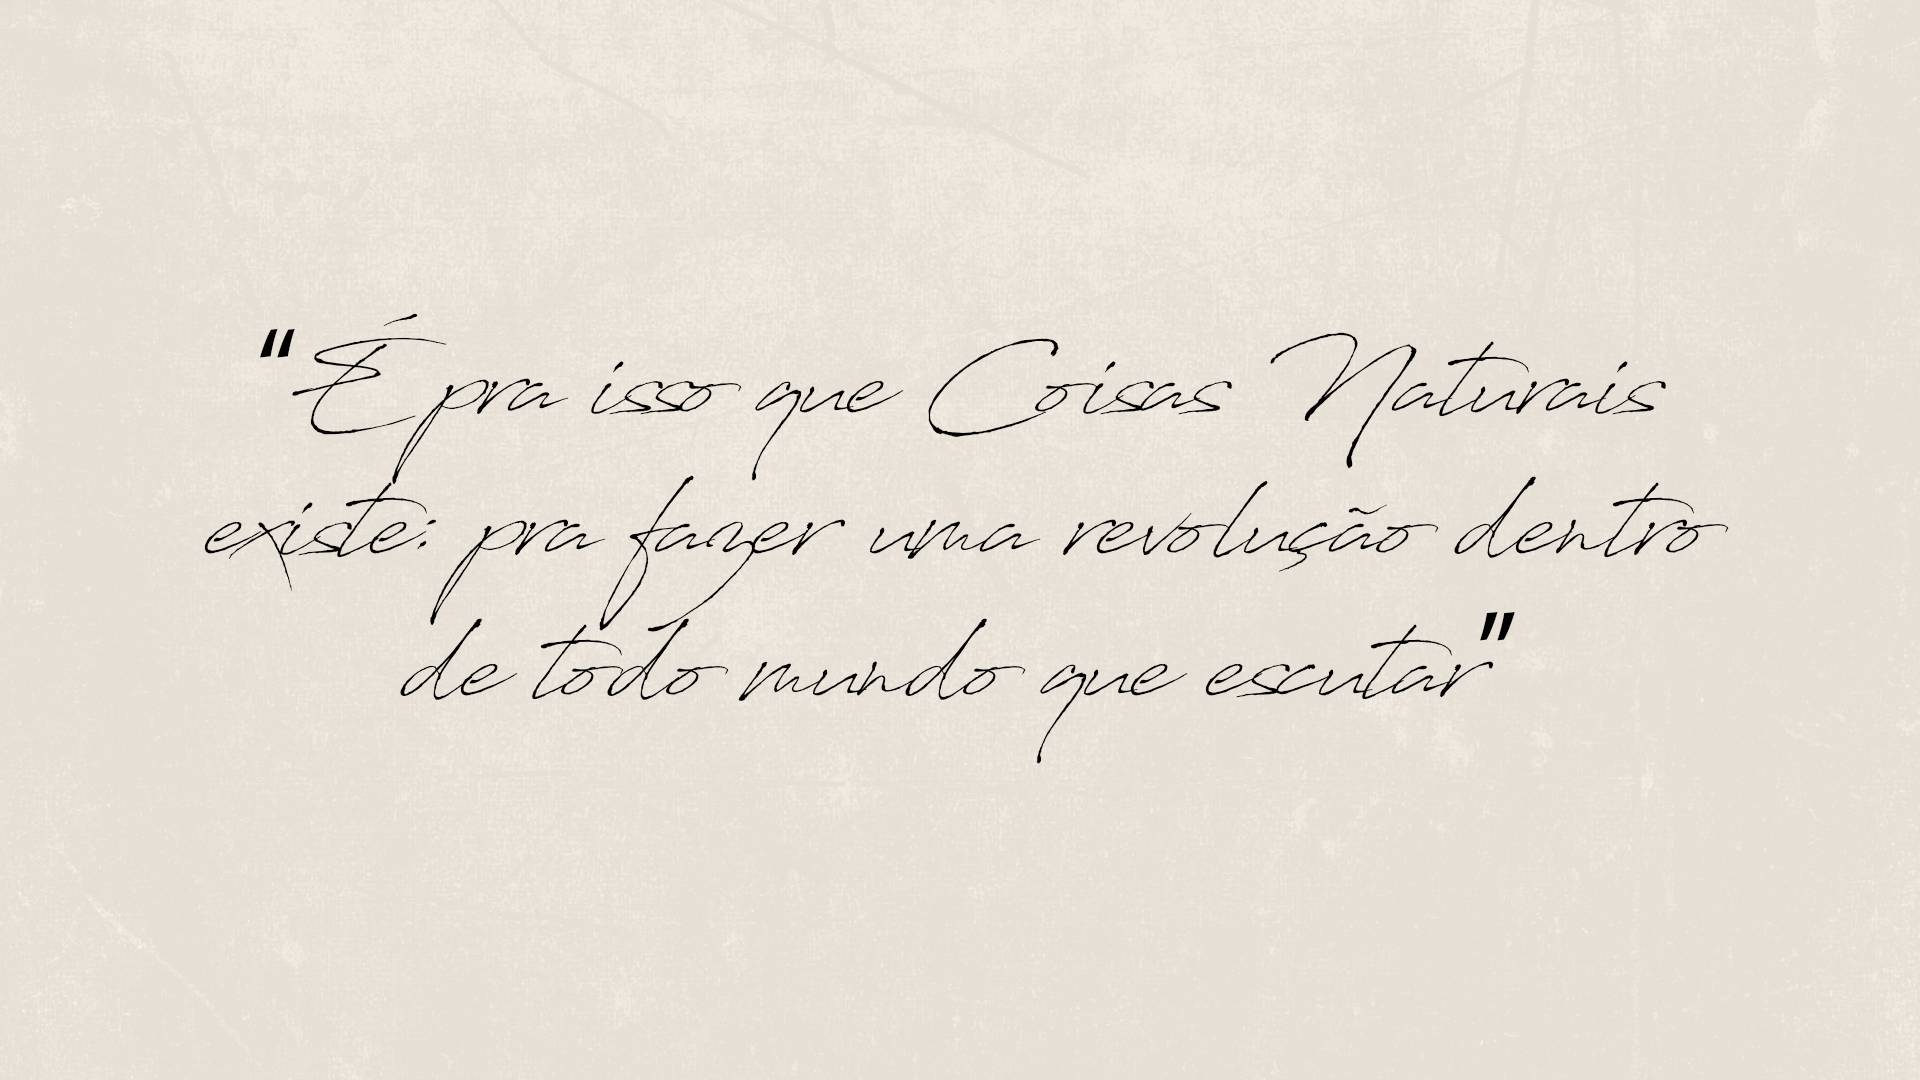 "É pra isso que Coisas Naturais
existe: pra fazer uma revolução dentro
de todo mundo que escutar"